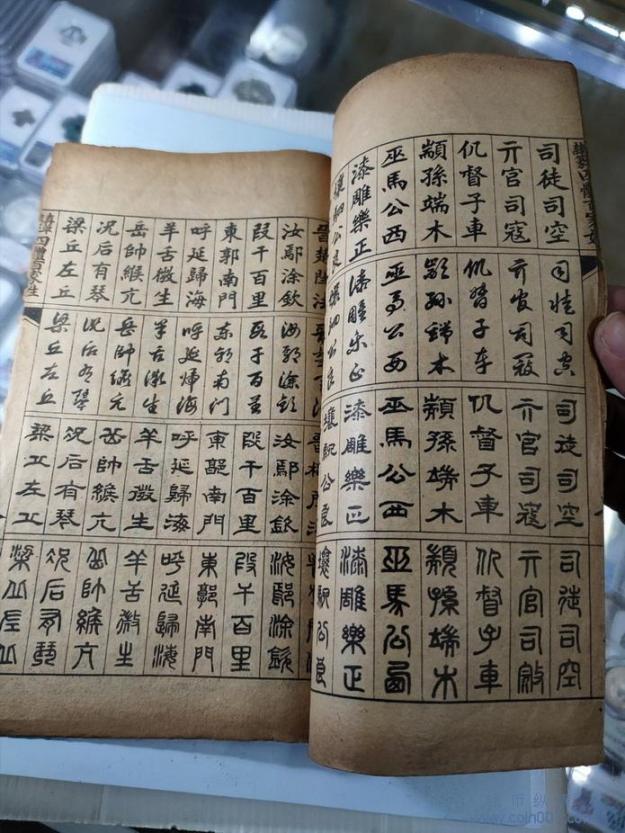 四體百家姓
司徒司空
亓官司寇
仉督子車
顓孫端木
巫馬公西
漆雕樂正
壤駟公良
司徒司空
亓官司寇
仉督子車
顓孫端木
巫馬公西
漆雕樂正
壤駟公良
司徒司空
亓官司寇
仉督子車
顓孫端木
巫馬公西
漆雕樂正
壤駟公良
司徒司空
亓官司寇
仉督子車
顓孫端木
巫馬公西
漆雕樂正
壤駟公良
汝鄢涂欽
段干百里
東郭南門
呼延歸海
羊舌微生
岳帥緱亢
况后有琴
梁丘左丘
汝鄢涂欽
段干百里
東郭南門
呼延歸海
羊舌微生
岳帥緱亢
况后有琴
梁丘左丘
汝鄢涂欽
段干百里
東郭南門
呼延歸海
羊舌微生
岳帥緱亢
况后有琴
梁丘左丘
汝鄢涂欽
段干百里
東郭南門
呼延歸海
羊舌微生
岳帥緱亢
况后有琴
梁丘左丘
四體百家姓